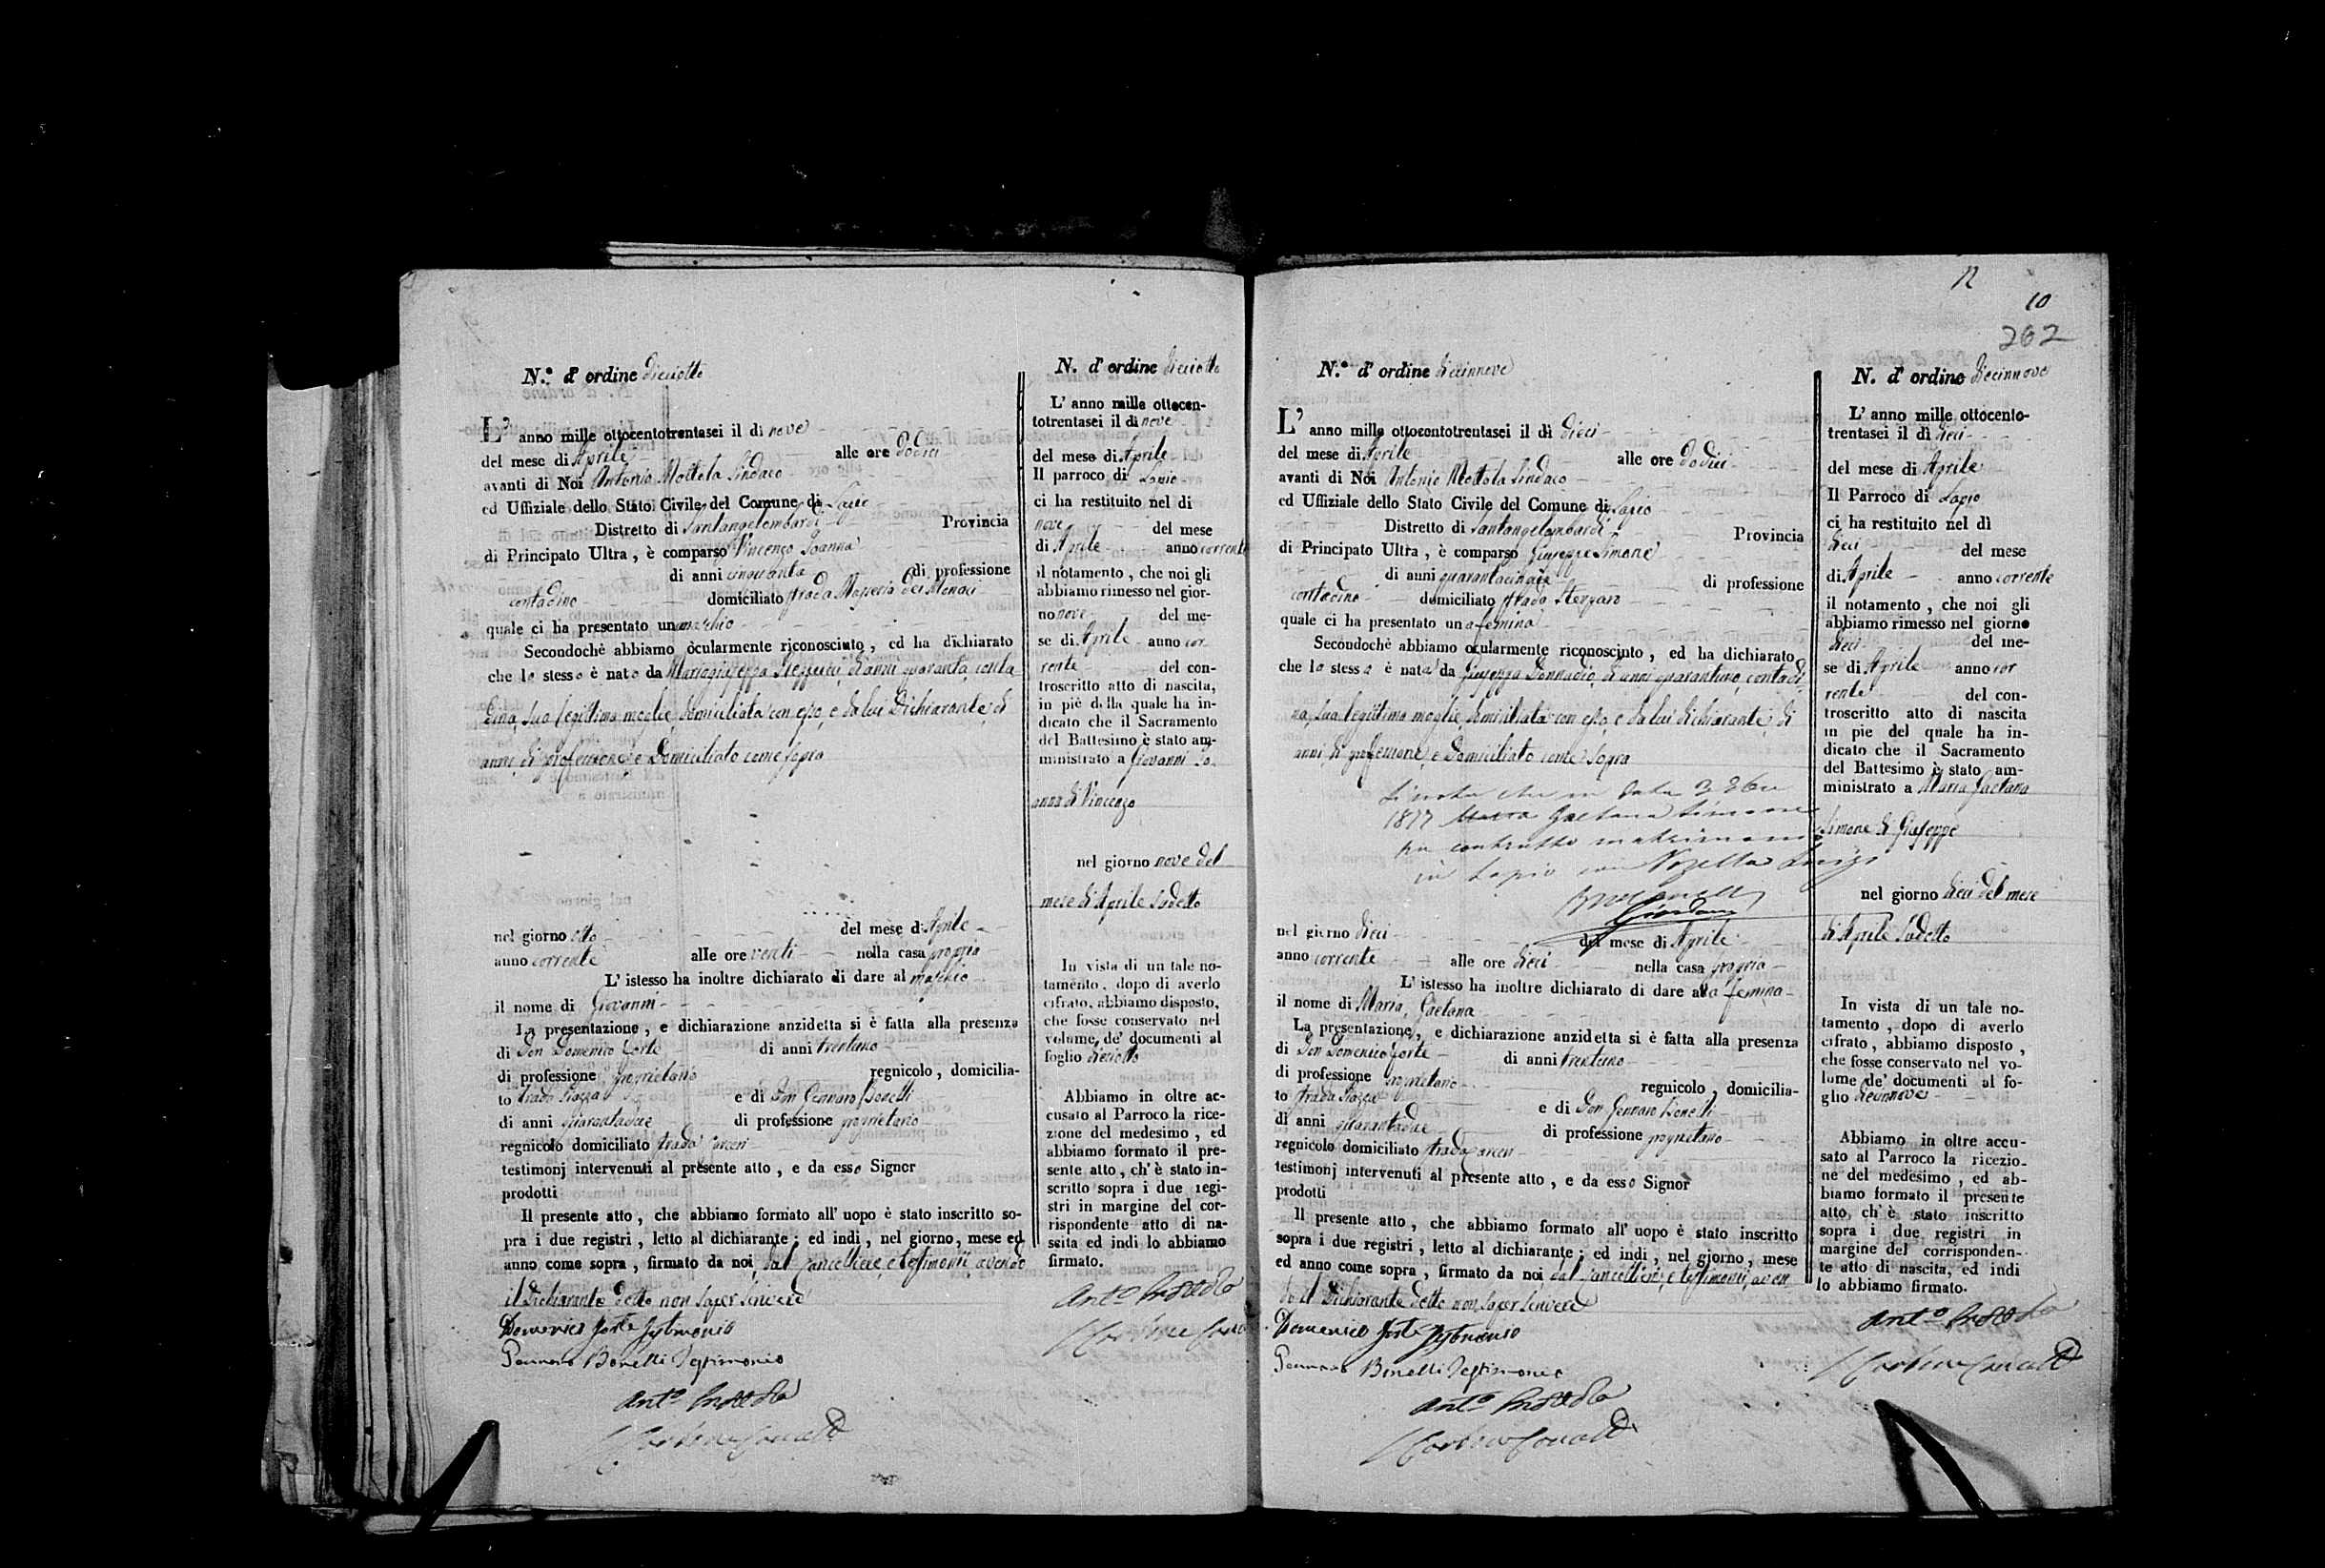 N.° d' ordine dieciotto
L' anno mille ottocentotrentasei il dì nove
del mese di Aprile alle ore dodici
avanti di Noi Antonio Mottola Sindaco
ed Uffiziale dello Stato Civile del Comune di Lapio
Distretto di Santangelombardi Provincia
di Principato Ultra , è comparso Vincenzo Joanna
di anni cinquanta di professione
contadino domiciliato strada Masseria dei Monaci
quale ci ha presentato un maschio
Secondochè abbiamo ocularmente riconosciuto , ed ha dichiarato
che lo stesso è nato da Mariagiuseppa di anni quaranta, conta
dina, sua legittima moglie, domiciliata con esso, e da lui Dichiarante, di
anni, di professione, e Domiciliato come sopra
nel giorno otto del mese di Aprile
anno corrente alle ore venti nella casa propria
L' istesso ha inoltre dichiarato di dare al maschio
il nome di Giovanni
La presentazione , e dichiarazione anzidetta si è fatta alla presenza
di Don Domenico Forte di anni trentuno
di professione proprietario regnicolo , domicilia-
to strada Piazza e di Don Gennaro Bonelli
di anni quarantadue di professione proprietario
regnicolo domiciliato strada Carceri
testimonj intervenuti al presente atto , e da esso Signor
prodotti
Il presente atto , che abbiamo formato all' uopo è stato inscritto so-
pra i due registri , letto al dichiarante ; ed indi , nel giorno, mese ed
anno come sopra , firmato da noi, dal Cancelliere, e testimonii, avendo
il Dichiarante detto non saper scrivere
Domenico Forte Testimonio
Gennaro Bonelli Testimonio
Ant.o Mottola
N. d' ordine dieciotto
L' anno mille ottocen-
totrentasei il dì nove
del mese di Aprile
Il parroco di Lapio
ci ha restituito nel dì
nove del mese
di Aprile anno corrente
il notamento , che noi gli
abbiamo rimesso nel gior-
no nove del me-
se di Aprile anno cor
rente del con-
troscritto atto di nascita,
in piè della quale ha in-
dicato che il Sacramento
del Battesimo è stato am-
ministrato a Giovanni Jo
anna di Vincenzo
nel giorno nove del
mese di Aprile sudetto
In vista di un tale no-
tamento, dopo di averlo
cifrato, abbiamo disposto,
che fosse conservato nel
volume, de' documenti al
foglio dieciotto
Abbiamo in oltre ac-
cusato al Parroco la rice-
zione del medesimo , ed
abbiamo formato il pre-
sente atto, ch' è stato in-
scritto sopra i due regi-
stri in margine del cor-
rispondente atto di na-
scita ed indi lo abbiamo
firmato.
Ant.o Mottola
12
10
262
N.° d' ordine diecinnove
L' anno mille ottocentotrentasei il dì dieci
del mese di Aprile alle ore dodici
avanti di Noi Antonio Mottola Sindaco
ed Uffiziale dello Stato Civile del Comune di Lapio
Distretto di Santangelombardi Provincia
di Principato Ultra , è comparso Giuseppe Simone
di anni quarantacinque di professione
contadino domiciliato strada
quale ci ha presentato una femina
Secondochè abbiamo ocularmente riconosciuto , ed ha dichiarato
che la stessa è nata da Giuseppa Donnadio, di anni quarantuno, contadi
na, sua legittima moglie, domiciliata con esso, e da lui dichiarante, di
anni, di professione, e Domiciliato come sopra
Si nota che in data 3
1877 Maria Gaetana Simone
ha contratto matrimonio
in Lapio con Nozella Luigi
Giordano
nel giorno dieci del mese di Aprile
anno corrente alle ore dieci nella casa propria
L' istesso ha inoltre dichiarato di dare alla femina
il nome di Maria, Gaetana
La presentazione , e dichiarazione anzidetta si è fatta alla presenza
di Don Domenico Forte di anni trentuno
di professione proprietario regnicolo , domicilia-
to strada Piazza e di Don Gennaro Bonelli
di anni quarantadue di professione proprietario
regnicolo domiciliato strada Carceri
testimonj intervenuti al presente atto , e da esso Signor
prodotti
Il presente atto , che abbiamo formato all' uopo è stato inscritto
sopra i due registri , letto al dichiarante ; ed indi , nel giorno, mese
ed anno come sopra , firmato da noi, dal Cancelliere, e testimonii, aven
do il Dichiarante detto non saper scrivere
Domenico Forte Testimonio
Gennaro Bonelli Testimonio
Ant.o Mottola
N. d' ordine diecinnove
L' anno mille ottocento-
trentasei il dì dieci
del mese di Aprile
Il Parroco di Lapio
ci ha restituito nel dì
dieci del mese
di Aprile anno corrente
il notamento , che noi gli
abbiamo rimesso nel giorno
dieci del me-
se di Aprile anno cor
rente del con-
troscritto atto di nascita
in piè del quale ha in-
dicato che il Sacramento
del Battesimo è stato am-
ministrato a Maria Gaetana
Simone di Giuseppe
nel giorno dieci del mese
di Aprile sudetto
In vista di un tale no-
tamento , dopo di averlo
cifrato, abbiamo disposto ,
che fosse conservato nel vo-
lume de' documenti al fo-
glio diecinnove
Abbiamo in oltre accu-
sato al Parroco la ricezio-
ne del medesimo , ed ab-
biamo formato il presente
atto ch' è stato inscritto
sopra i due registri in
margine del corrisponden-
te atto di nascita, ed indi
lo abbiamo firmato.
Ant.o Mottola